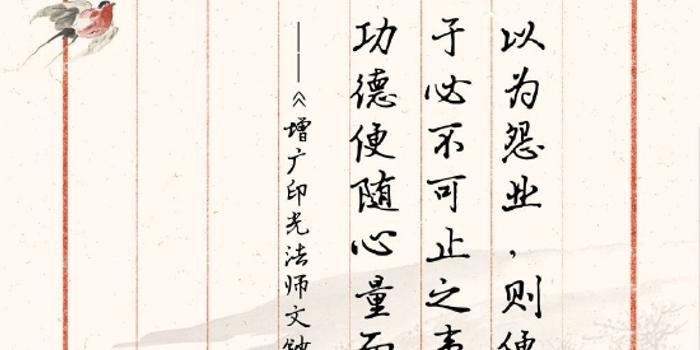 以为怨业，则便
于必不可止之事
功德便随心量而
——《增广印光法师文钞